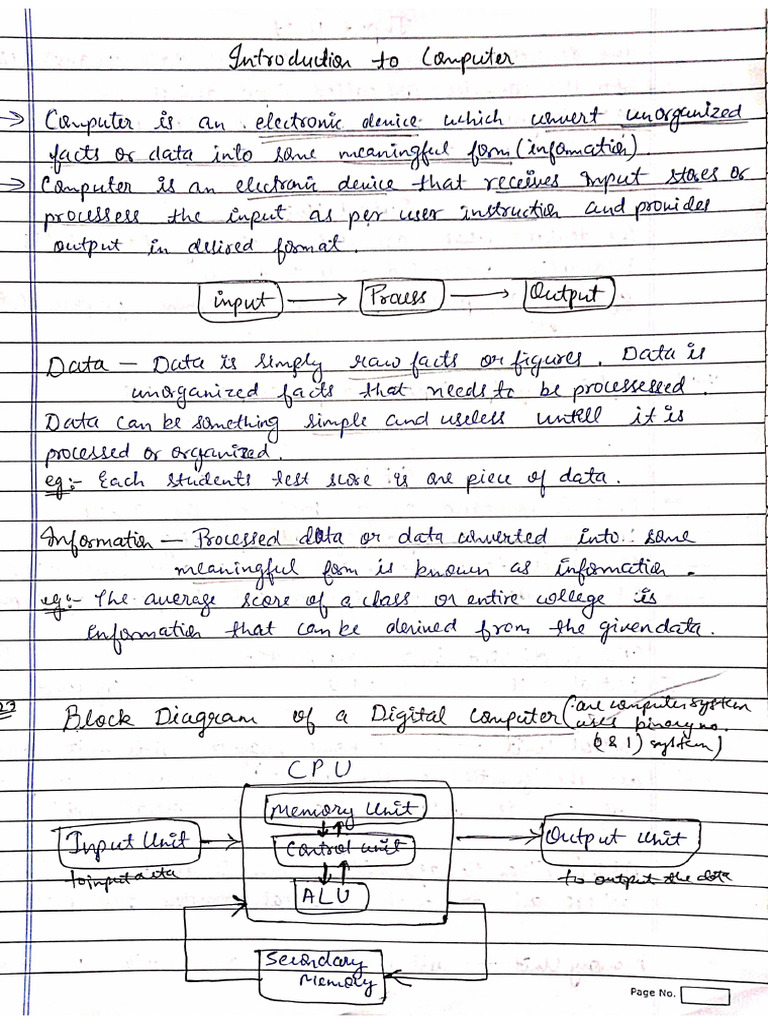 Introduction to Computer
→ Computer is an electronic device which convert unorganized
facts or data into some meaningful form (information).
→ Computer is an electronic device that receives input stores or
processess the input as per user instruction and provides
output in desired format.
input → Process → Output
Data – Data is simply raw facts or figures. Data is
unorganized facts that needs to be processessed.
Data can be something simple and useless untill it is
processed or organized.
eg:- Each students test score is one piece of data.
Information – Processed data or data converted into some
meaningful form is known as information.
eg:- The average score of a class or entire college is
information that can be derived from the given data.
Block Diagram of a Digital Computer (are computer system
uses binary no.
(0 & 1) system)
CPU
Memory Unit
Input Unit
Control unit
Output Unit
to input data
to output the data
ALU
Secondary
Memory
Page No.